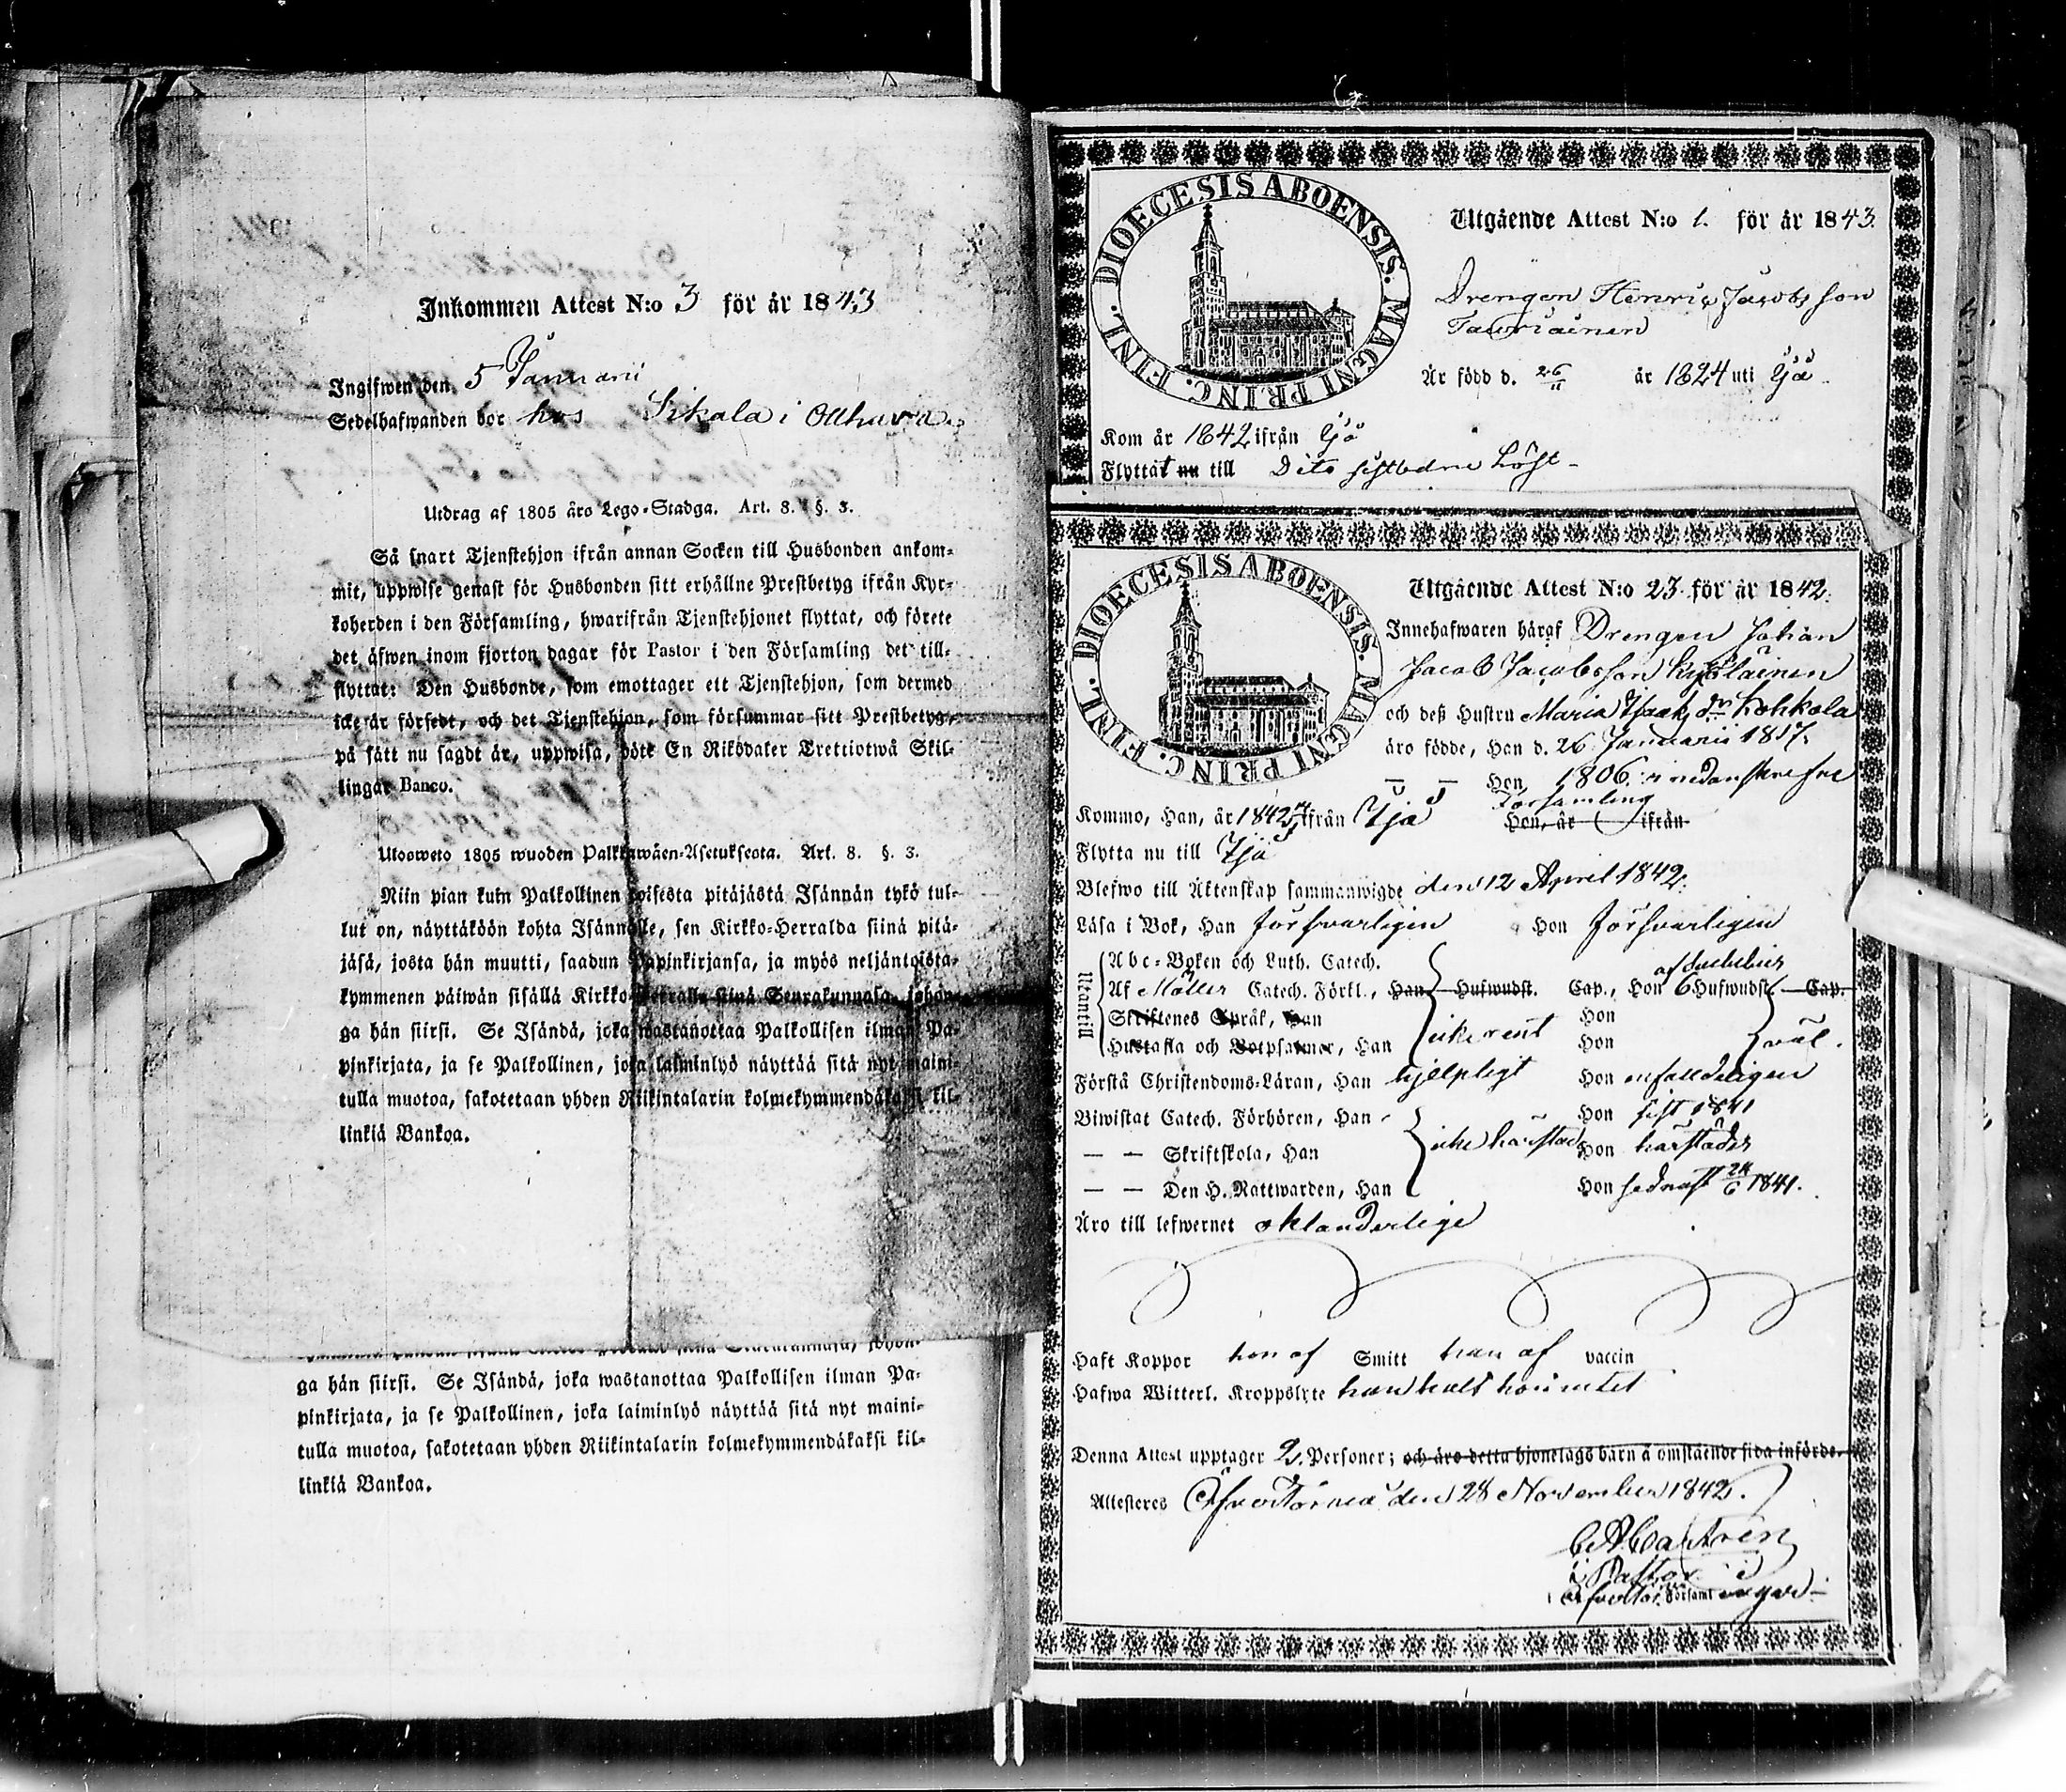 Inkommen Attest N:o 3 för år 1843
Ingifwen den 5 Januarii
Sedelhafwanden bor hos Sikala i Olhava
Utdrag af 1805 års Lego-Stadga. Art. 8. §. 3.
Så snart Tjenstehjon ifrån annan Socken till Husbonden ankom-
mit, uppwise genast för Husbonden sitt erhållne Prestbetyg ifrån Kyr-
koherden i den Församling, hwarifrån Tjenstehjonet flyttat, och förete
det äfwen inom fjorton dagar för Pastor i den Församling det till-
flyttat: Den Husbonde, som emottager ett Tjenstehjon, som dermed
icke är försedt, och det Tjenstehjon, som försummar sitt Prestbetyg,
på sätt nu sagdt är, uppwisa, böte En Riksdaler Trettiotwå Skil-
lingar Banco.
Ulosweto 1805 wuoden Palkkawäen-Asetuksesta. Art. 8. §. 3.
Niin pian kuin Palkollinen toisesta pitäjästä Isännän tykö tul-
lut on, näyttäköön kohta Isännälle, sen Kirkko-Herralda siinä pitä-
jäsä, josta hän muutti, saadun Papinkirjansa, ja myös neljäntoista-
kymmenen päiwän sisällä Kirkko-Herralle siinä Seurakunnasa, johon-
ga hän siirsi. Se Isändä, joka wastanottaa Palkollisen ilman Pa-
pinkirjata, ja se Palkollinen, joka laiminlyö näyttää sitä nyt maini-
tulla muotoa, sakotetaan yhden Riikintalarin kolmekymmendäkaksi kil-
linkiä Bankoa.
ga hän siirsi. Se Isändä, joka wastanottaa Palkollisen ilman Pa-
pinkirjata, ja se Palkollinen, joka laiminlyö näyttää sitä nyt maini-
tulla muotoa, sakotetaan yhden Riikintalarin kolmekymmendäkaksi kil-
linkiä Bankoa.
DIOECESIS ABOENSIS. MAGNI PRINC. FINL.
Utgående Attest N:o 1. för år 1843.
Drengen Henric Jacobsson
Tauriainen
Är född d. 26/11 år 1824 uti Ijå
Kom år 1842 ifrån Ijå
Flyttat nu till Dito sistledne höst
DIOECESIS ABOENSIS. MAGNI PRINC. FINL.
Utgående Attest N:o 23 för år 1842.
Innehafwaren häraf Drengen Johan
Jacob Jacobsson
och deß Hustru Maria Isaks dr. Lohkola
äro födde, Han d. 26 Januarii 1817.
— — Hon 1806. i nedanskrefne
Församling
Kommo, Han, år 1842 ifrån Ijå Hon, år ifrån
Flytta nu till Ijå
Blefwo till Äktenskap sammanwigde den 12 April 1842.
Läsa i Bok, Han försvarligen Hon försvarligen
Utantill
Abc-Boken och Luth. Catech.
Af Möller Catech. Förkl., Han Hufwudst. Cap., Hon 6 Hufwudst. Cap.
Skriftenes Språk, Han Hon
Hustafla och Botpsalmer, Han icke rent Hon väl.
Förstå Christendoms-Läran, Han hjelpligt Hon enfalldeligen
Biwistat Catech. Förhören, Han Hon sist 1841
— — Skriftskola, Han icke härstädes Hon härstädes
— — Den H. Nattwarden, Han Hon sednast 24/6 1841.
Äro till lefwernet oklanderlige
Haft Koppor hon af Smitt han af vaccin
Hafwa Witterl. Kroppslyte han halt hon intet
Denna Attest upptager 2. Personer; och äro detta hjonelags barn å omstående sida införde.
Attesteres ÖfverTorneå den 28 November 1842.
C A Castrén
Pastor i